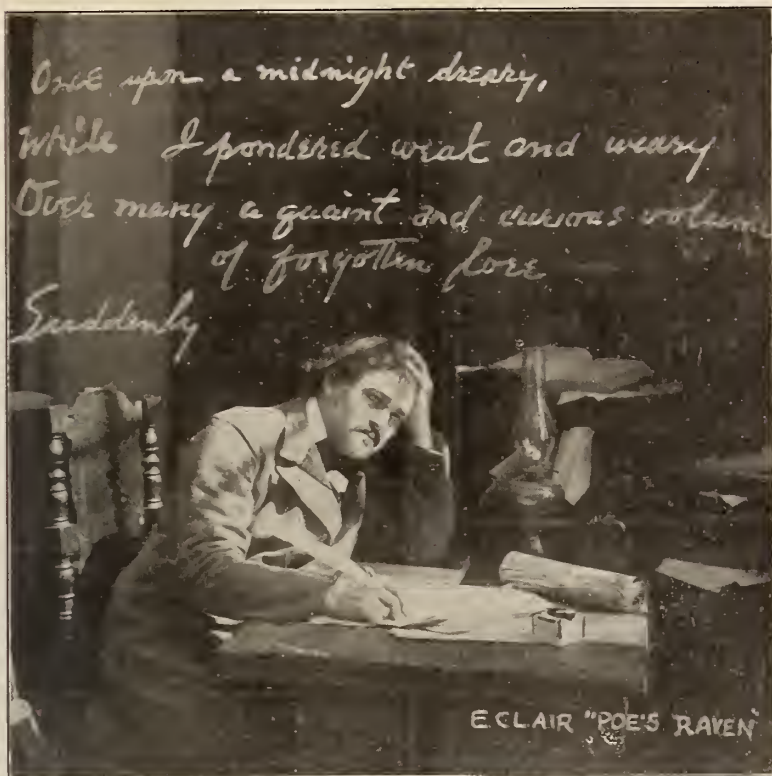 Once upon a midnight dreary,
While I pondered weak and weary
Over many a quaint and curious volume
of forgotten lore
Suddenly
ECLAIR "POE'S RAVEN"